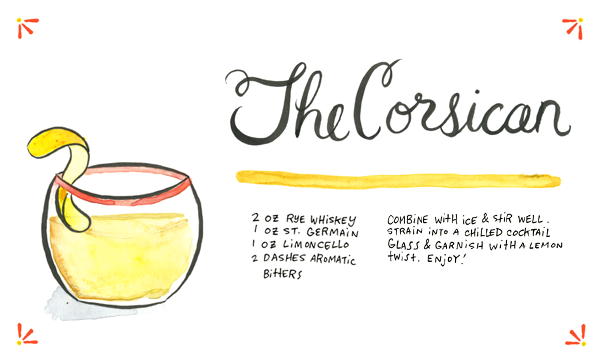 The Corsican
2 oz Rye Whiskey
1 oz St. Germain
1 oz Limoncello
2 Dashes Aromatic
Bitters
Combine with ice & stir well.
Strain into a chilled cocktail
glass & garnish with a lemon
twist. Enjoy!